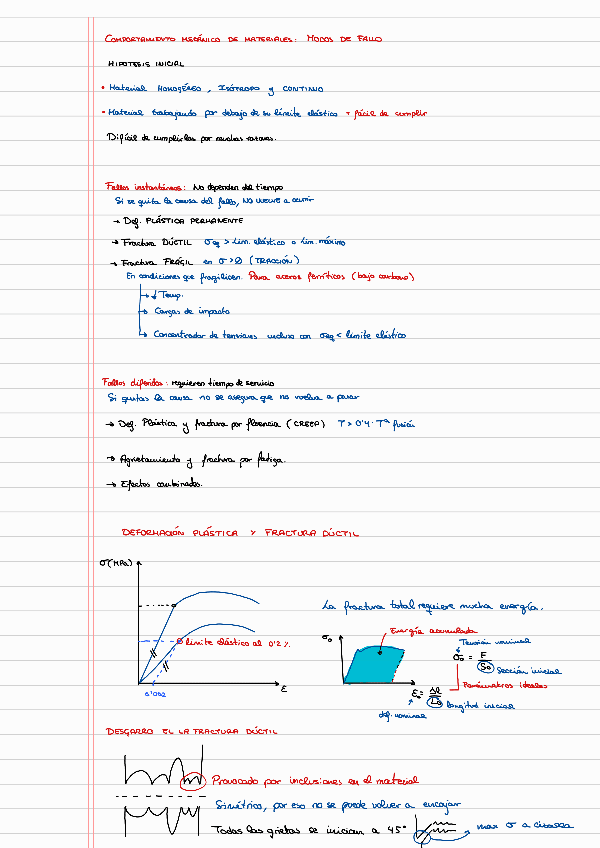 COMPORTAMIENTO MECÁNICO DE MATERIALES: MODOS DE FALLO
HIPOTESIS INICIAL
• Material HOMOGÉNEO, ISÓTROPO y CONTINUO
• Material trabajando por debajo de su límite elástico → fácil de cumplir
Difícil de cumplirlas por muchas razones.
Fallos instantáneos: No dependen del tiempo
Si se quita la causa del fallo, NO vuelve a ocurrir
→ Def. PLÁSTICA PERMANENTE
→ Fractura DÚCTIL σeq > Lim. elástico o Lim. máximo
→ Fractura FRÁGIL en σ>0 (TRACCIÓN)
En condiciones que fragilicen. Para aceros ferríticos (bajo carbono)
→ ↓ Temp.
→ Cargas de impacto
→ Concentrador de tensiones incluso con σeq < límite elástico
Fallos diferidos: requieren tiempo de servicio
Si quitas la causa no se asegura que no vuelva a pasar
→ Def. Plástica y fractura por fluencia (CREEP) T > 0'4·Tª fusión
→ Agrietamiento y fractura por fatiga.
→ Efectos combinados.
DEFORMACIÓN PLÁSTICA Y FRACTURA DÚCTIL
σ(MPa)
límite elástico al 0'2%
ε
0'002
La fractura total requiere mucha energía.
Energía acumulada
σ₀
Tensión nominal
σ₀ = F/S₀ sección inicial
Parámetros ideales
ε₀ = Δl/L₀ longitud inicial
def. nominal
DESGARRO EN LA FRACTURA DÚCTIL
Provocado por inclusiones en el material
Simétrico, por eso no se puede volver a encajar
Todas las grietas se inician a 45°
max σ a cizalla